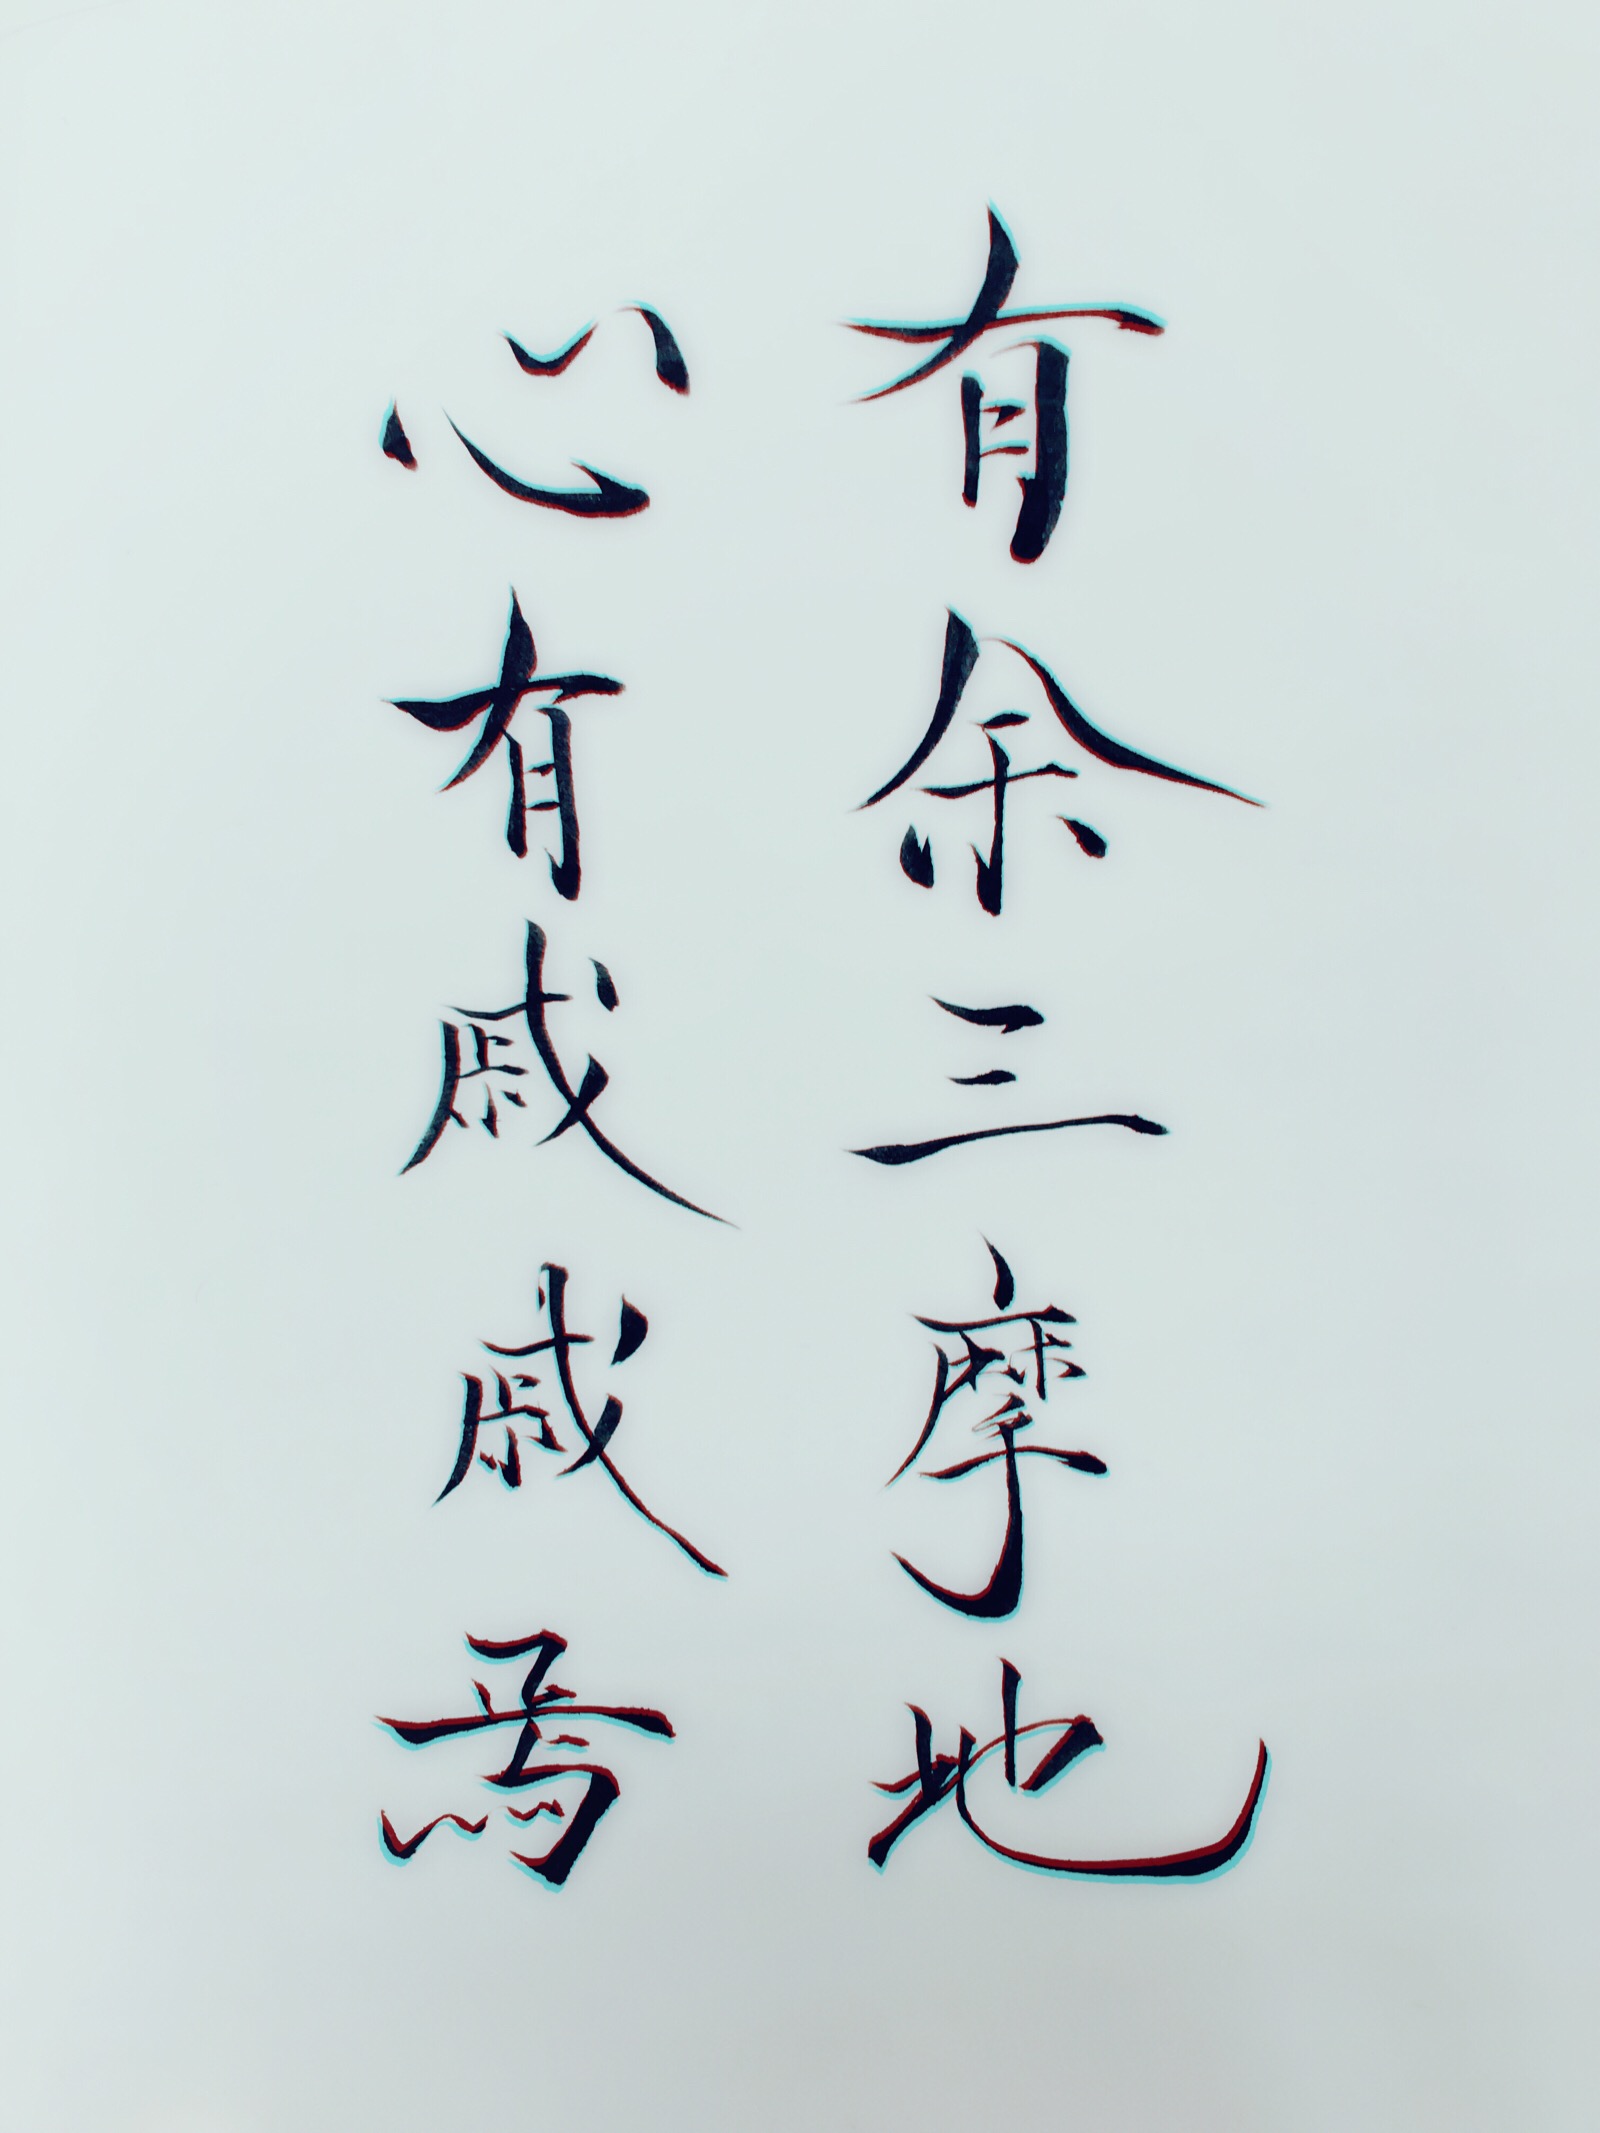 有余三摩地
心有戚戚焉